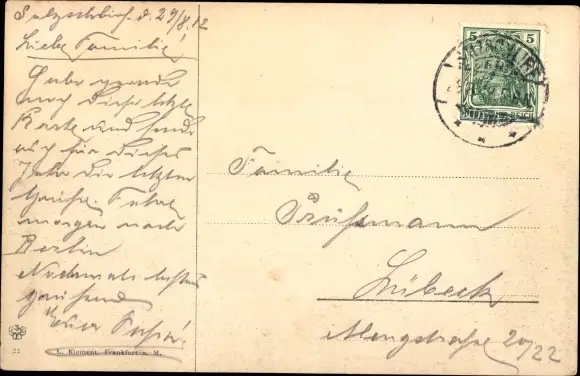 Salzschlirf. d. 29/8.12
Liebe Familie!
Habe gerade
noch diese letzte
Karte und sende
auch für dieses
Jahr die letzten
Grüße. Fahre
morgen nach
Berlin
Nochmals
grüßend
Euer
5 5
SALZSCHLIRF
Familie
Prüßmann
Lübeck
Mengstraße 20/22
22
L. Klement, Frankfurt a. M.